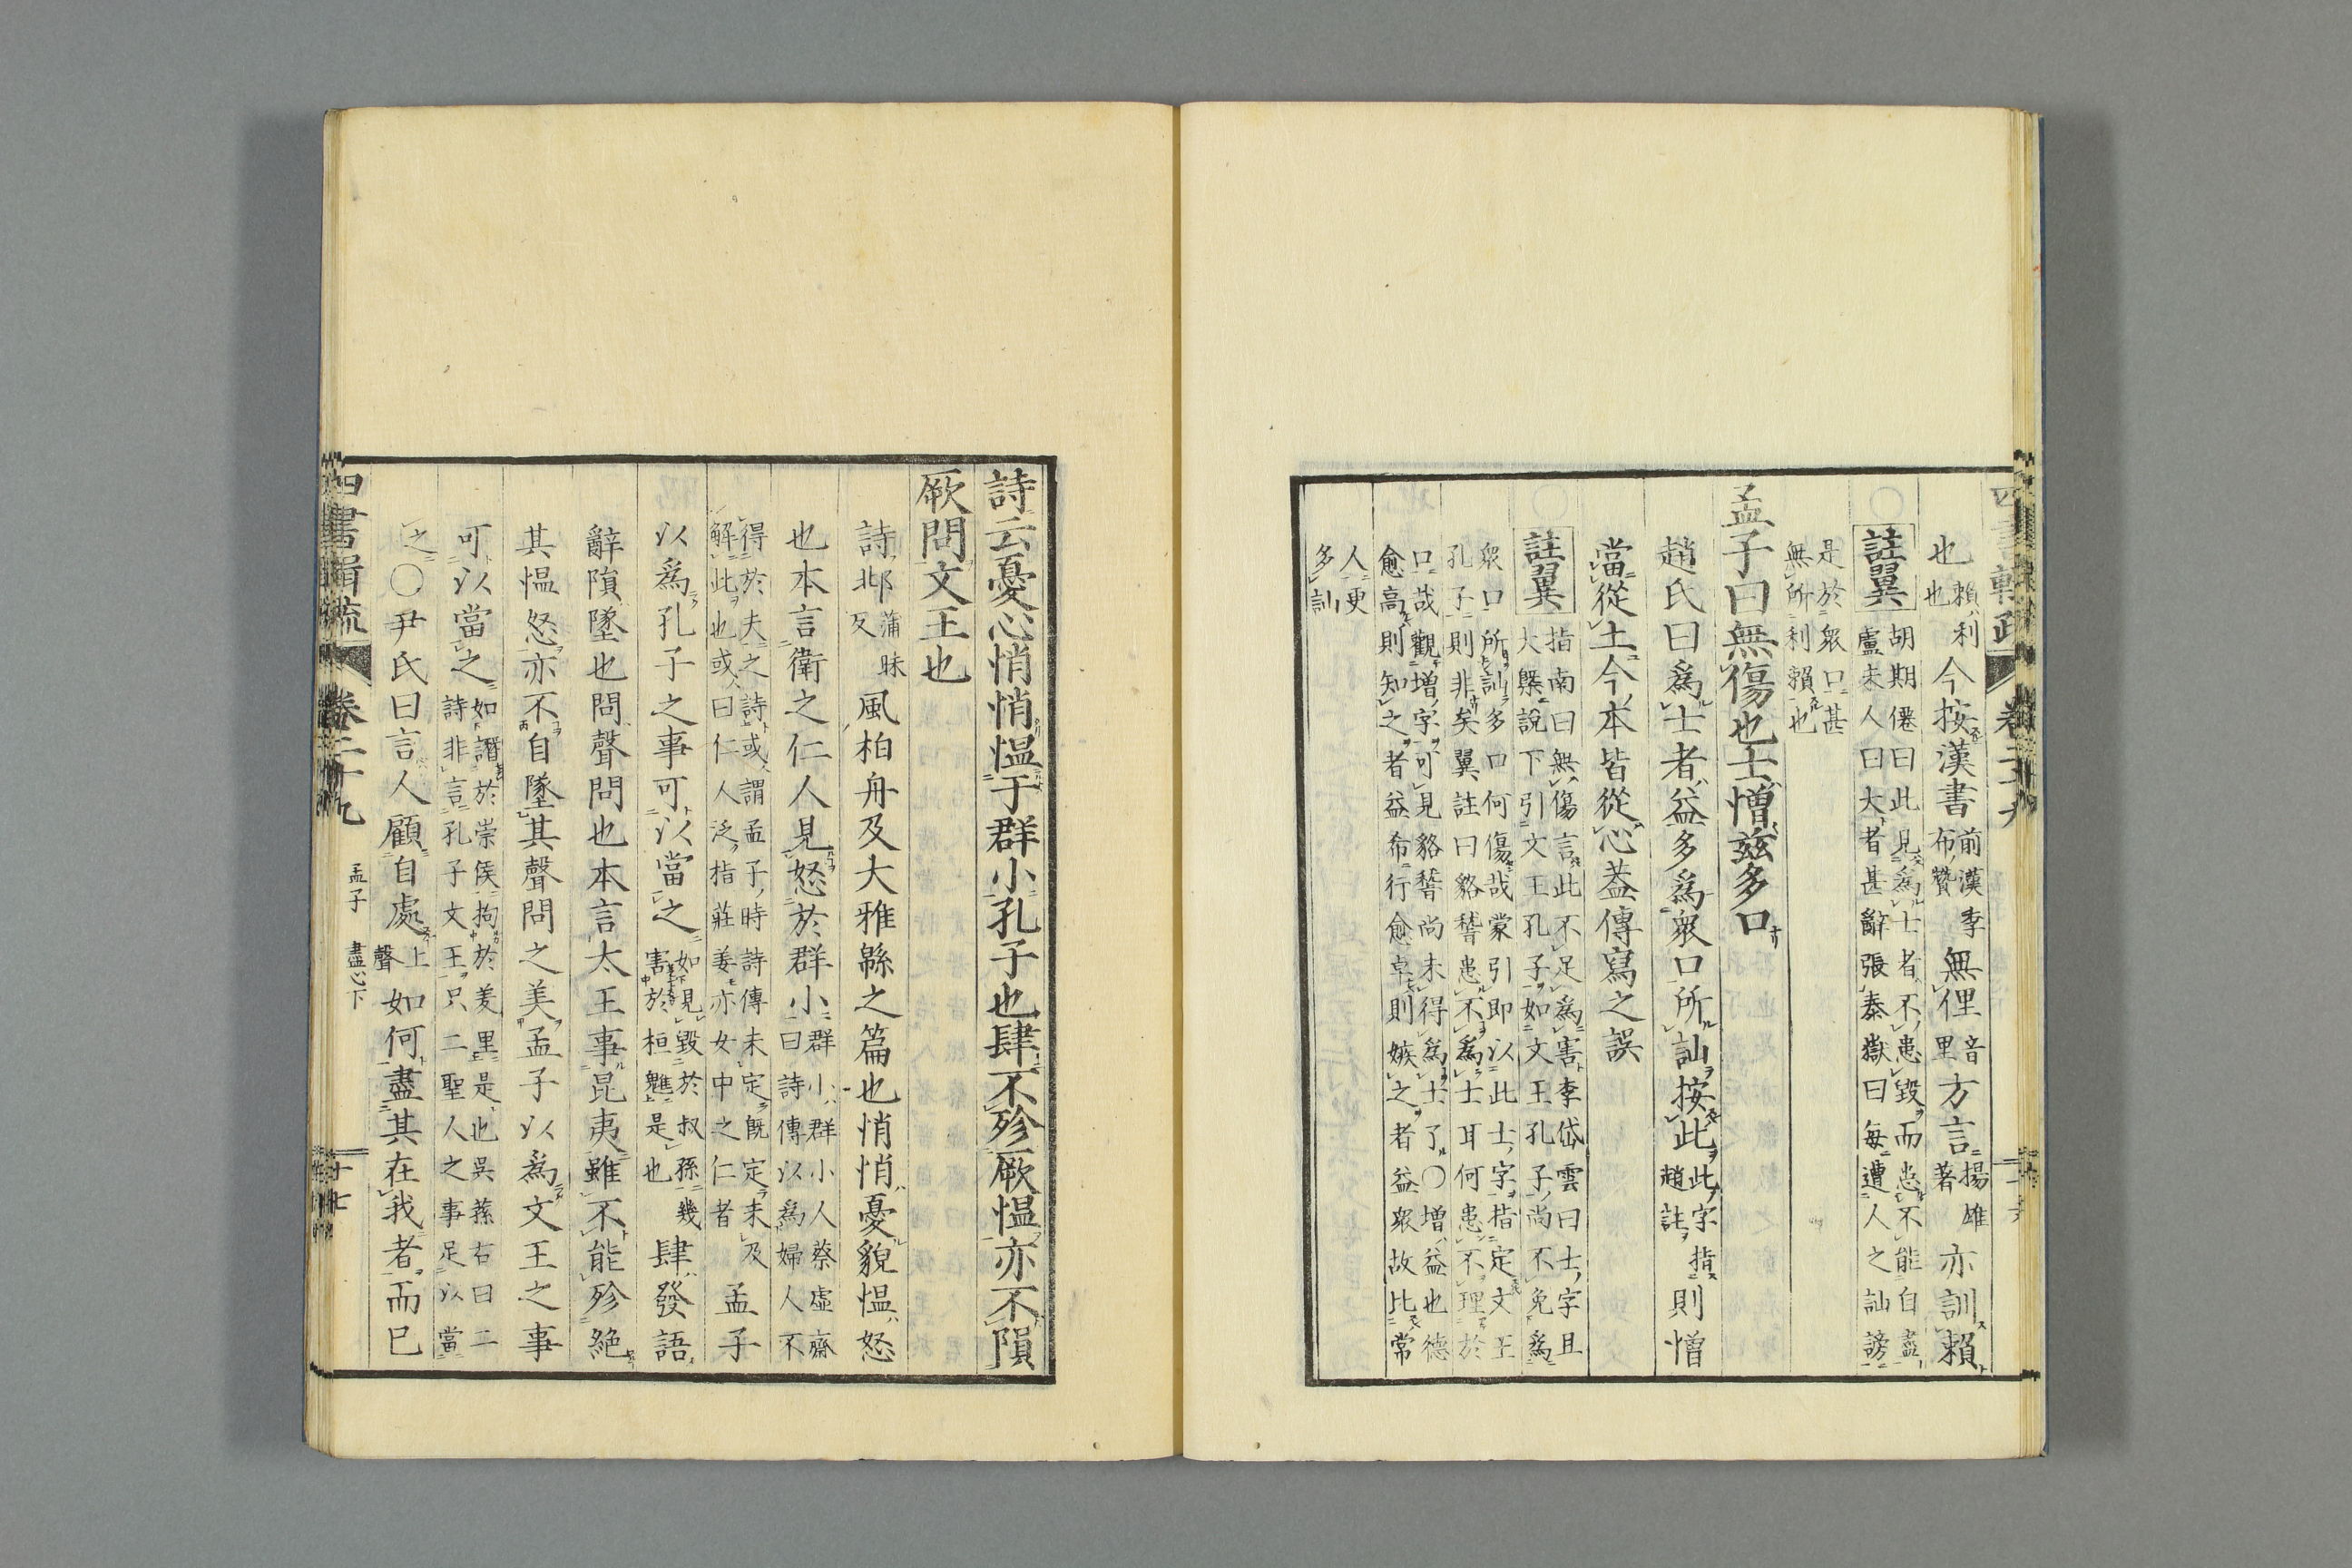 也賴利也今按漢書前漢季布贊無俚音里方言揚雄著亦訓賴
註翼胡期僊曰此見爲士者不患毀而患不能自盡
盧未人曰大者甚辭張泰嶽曰每遭人之訕謗
是於衆口甚
無所利賴也
孟子曰無傷也士憎茲多口
趙氏曰爲士者益多爲衆口所訕按此此字指趙註則憎
當從土今本皆從心蓋傳寫之誤
註翼指南曰無傷言此不足爲害李岱雲曰士字且
大槩說下引文王孔子如文王孔子尚不免爲
衆口所訕多口何傷哉蒙引即以此士字指定文王
孔子則非矣翼註曰貉稽患不爲士耳何患不理於
口哉觀增字可見貉稽尚未得爲士了〇增益也德
愈高則知之者益希行愈卓則嫉之者益衆故比常
人更
多訕
詩云憂心悄悄慍于群小孔子也肆不殄厥慍亦不隕
厥問文王也
詩邶蒲昧反風柏舟及大雅緜之篇也悄悄憂貌慍怒
也本言衛之仁人見怒於群小群小群小人蔡虛齋曰詩傳以爲婦人不
得於夫之詩或謂孟子時詩傳未定既定未及
解此也或曰仁人泛指莊姜亦女中之仁者孟子
以爲孔子之事可以當之如見毀於叔孫幾害於桓魋是也肆發語
辭隕墜也問聲問也本言太王事昆夷雖不能殄絕
其慍怒亦不自墜其聲問之美孟子以爲文王之事
可以當之如譖於崇侯拘於羑里是也吳蓀右曰二
詩非言孔子文王只二聖人之事足以當
之〇尹氏曰言人顧自處上聲如何盡其在我者而已
四書輯疏 卷二十九 孟子 盡心下 十七